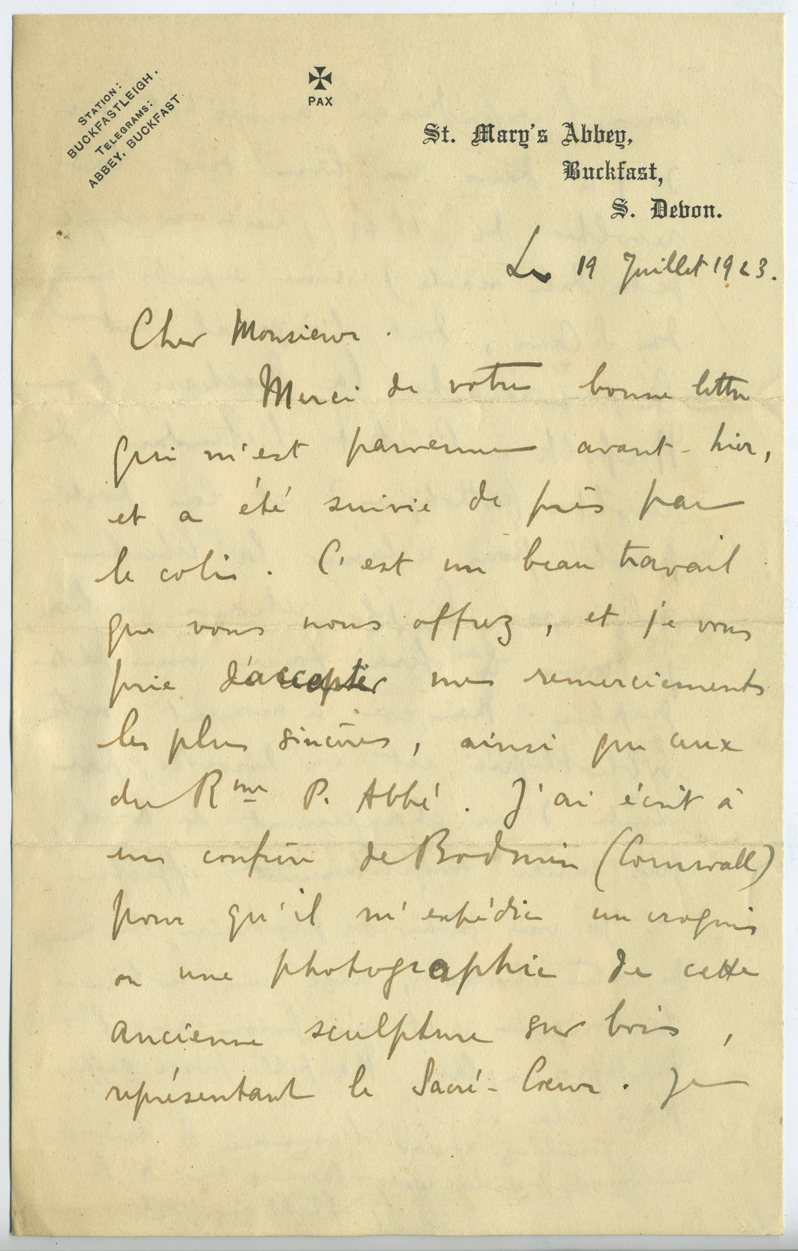 STATION:
BUCKFASTLEIGH.
TELEGRAMS:
ABBEY, BUCKFAST.
PAX
St. Mary's Abbey,
Buckfast,
S. Devon.
Le 19 Juillet 1923.
Cher Monsieur.
Merci de votre bonne lettre
qui m'est parvenue avant-hier,
et a été suivie de près par
le colis. C'est un beau travail
que vous nous offrez, et je vous
prie d'accepter mes remerciements
les plus sincères, ainsi que ceux
du Rme P. Abbé. J'ai écrit à
un confrère de Bodmin (Cornwall)
pour qu'il m'expédie un croquis
ou une photographie de cette
ancienne sculpture sur bois,
représentant le Sacré-Coeur. Je